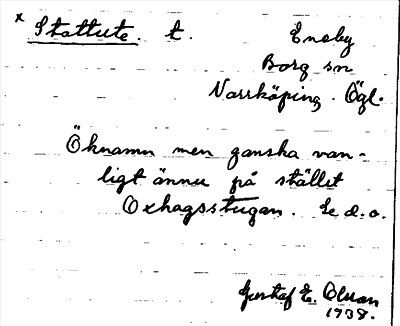 x Stattute. t. Eneby
Borg sn
Norrköping. Ögl.
Öknamn men ganska van-
ligt ännu på stället
Oxhagsstugan. Se d.o.
Gustaf E. Olsson
1938.